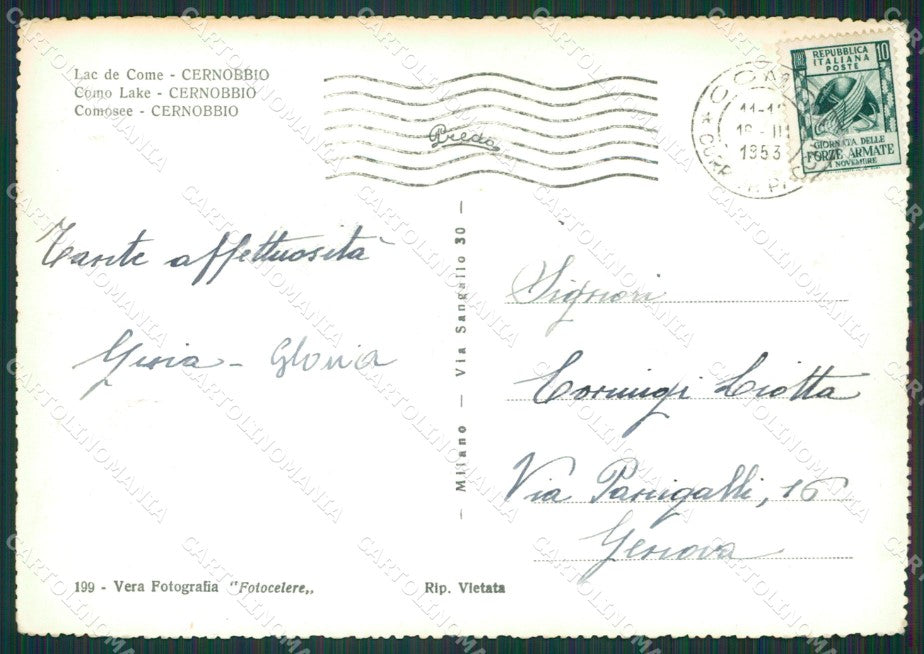 Lac de Come - CERNOBBIO
Como Lake - CERNOBBIO
Comosee - CERNOBBIO
Preda
COMO
11-12
16-III
1953
REPUBBLICA
ITALIANA
POSTE
10
GIORNATA DELLE
FORZE ARMATE
NOVEMBRE
Tante affettuosità
Gloria
Milano — Via Sangallo 30
Signori
Liotta
Via Parrigalli, 16
Genova
199 - Vera Fotografia "Fotocelere„
Rip. Vietata
CARTOLINOMANIA